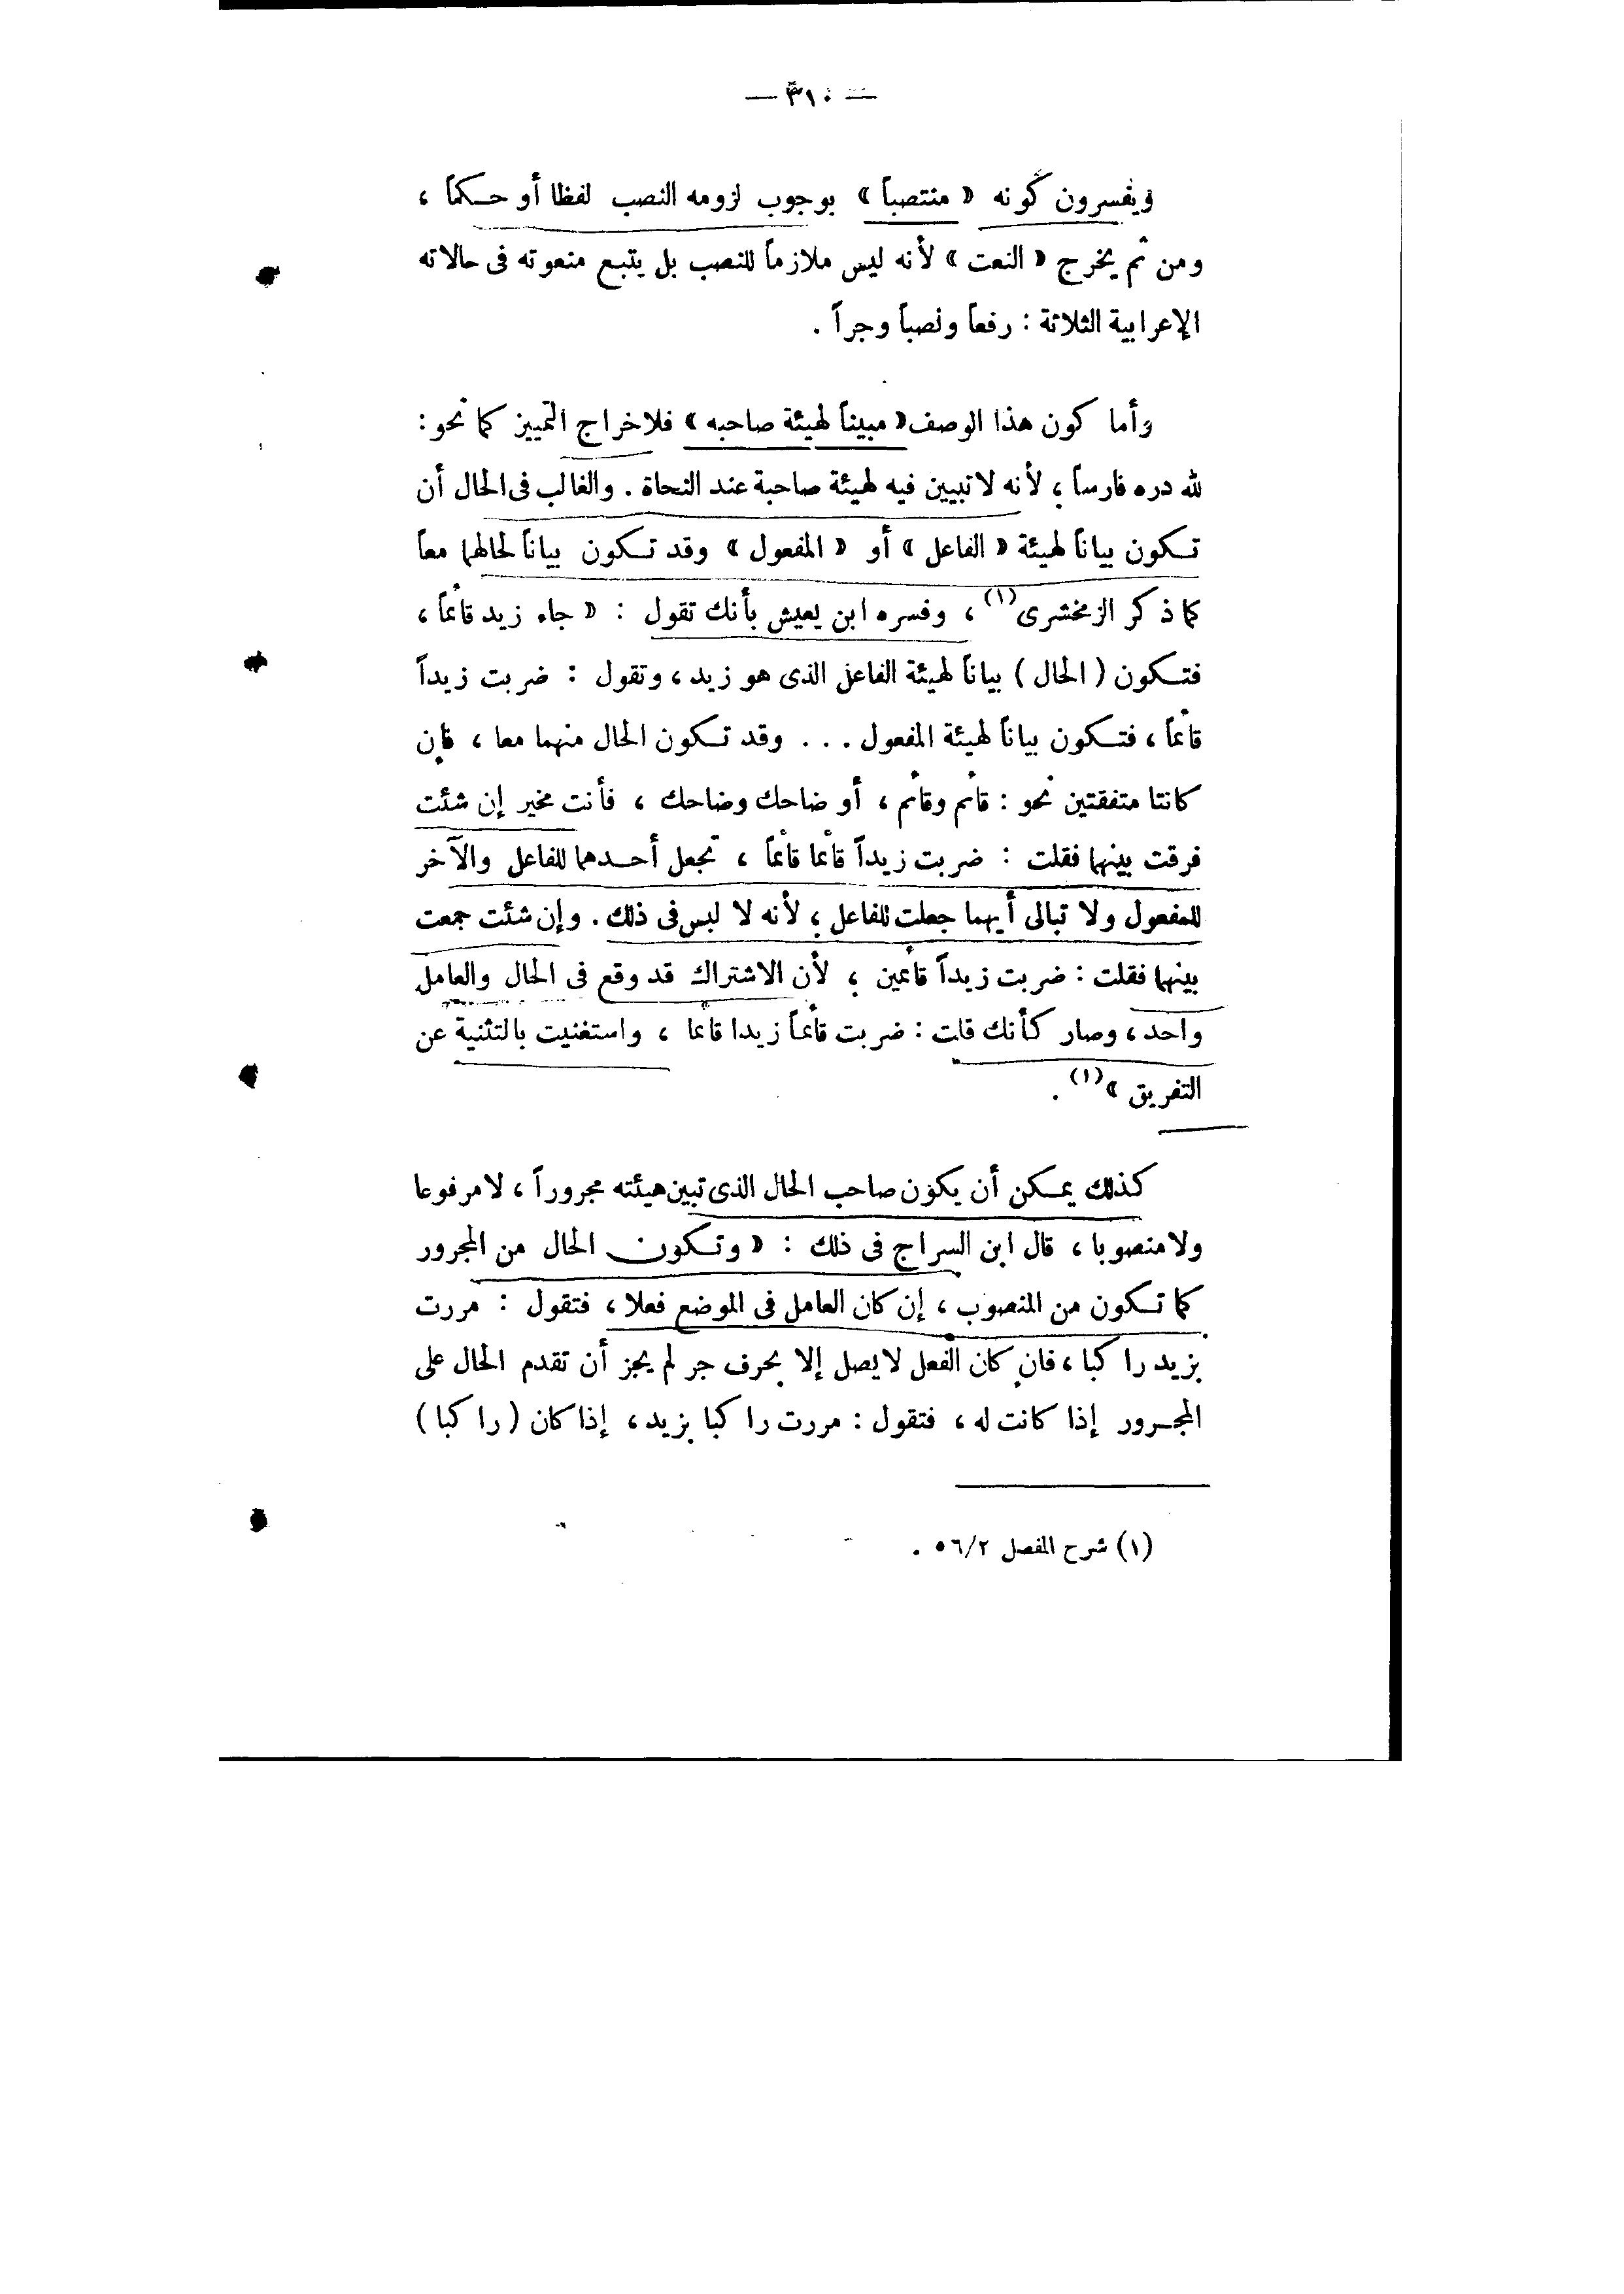 — ٣١٠ —
ويفسرون كونه « منتصباً » بوجوب لزومه النصب لفظا أو حكماً ،
ومن ثم يخرج « النعت » لأنه ليس ملازماً للنصب بل يتبع منعوته فى حالاته
الإعرابية الثلاثة : رفعاً ونصباً وجراً .
وأما كون هذا الوصف « مبيناً لهيئة صاحبه » فلاخراج التمييز كما نحو :
لله دره فارساً ؛ لأنه لا تبيين فيه لهيئة صاحبة عند النحاة . والغالب فى الحال أن
تكون بياناً لهيئة « الفاعل » أو « المفعول » وقد تكون بياناً لحالهما معاً
كما ذكر الزمخشرى(١) ، وفسره ابن يعيش بأنك تقول : « جاء زيد قائماً ،
فتكون ( الحال ) بياناً لهيئة الفاعل الذى هو زيد ، وتقول : ضربت زيداً
قائماً ، فتكون بياناً لهيئة المفعول . . . وقد تكون الحال منهما معا ، فإن
كانتا متفقتين نحو : قائم وقائم ، أو ضاحك وضاحك ، فأنت مخير إن شئت
فرقت بينهما فقلت : ضربت زيداً قائما قائماً ، تجعل أحدهما للفاعل والآخر
للمفعول ولا تبالى أيهما جعلت للفاعل ؛ لأنه لا لبس فى ذلك . وإن شئت جمعت
بينهما فقلت : ضربت زيداً قائمين ؛ لأن الاشتراك قد وقع فى الحال والعامل
واحد ، وصار كأنك قلت : ضربت قائماً زيدا قائما ، واستغنيت بالتثنية عن
التفريق »(١) .
كذلك يمكن أن يكون صاحب الحال الذى تبين هيئته مجروراً ، لا مرفوعا
ولا منصوبا ، قال ابن السراج فى ذلك : « وتكون الحال من المجرور
كما تكون من المنصوب ، إن كان العامل فى الموضع فعلا ، فتقول : مررت
بزيد راكبا ، فإن كان الفعل لا يصل إلا بحرف جر لم يجز أن تقدم الحال على
المجرور إذا كانت له ، فتقول : مررت راكبا بزيد ، إذا كان ( راكبا )
(١) شرح المفصل ٥٦/٢ .